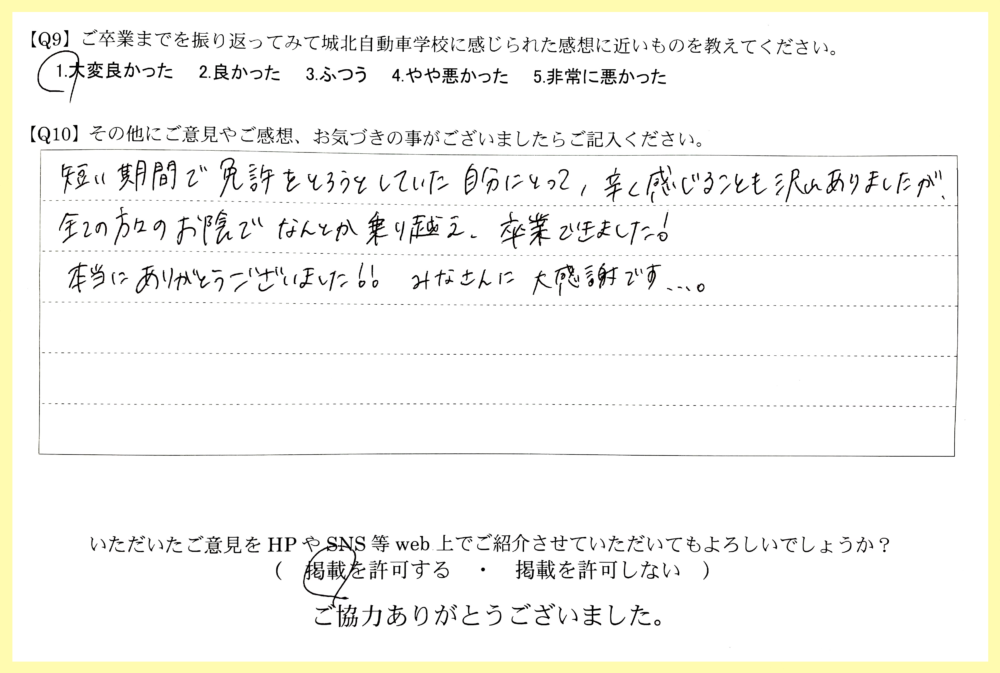 【Q9】ご卒業までを振り返ってみて城北自動車学校に感じられた感想に近いものを教えてください。
1.大変良かった 2.良かった 3.ふつう 4.やや悪かった 5.非常に悪かった
【Q10】その他にご意見やご感想、お気づきの事がございましたらご記入ください。
短い期間で免許をとろうとしていた自分にとって、辛く感じることも沢山ありましたが、
全ての方々のお陰でなんとか乗り越え、卒業できました!
本当にありがとうございました!! みなさんに大感謝です...。
いただいたご意見をHPやSNS等web上でご紹介させていただいてもよろしいでしょうか?
( 掲載を許可する ・ 掲載を許可しない )
ご協力ありがとうございました。